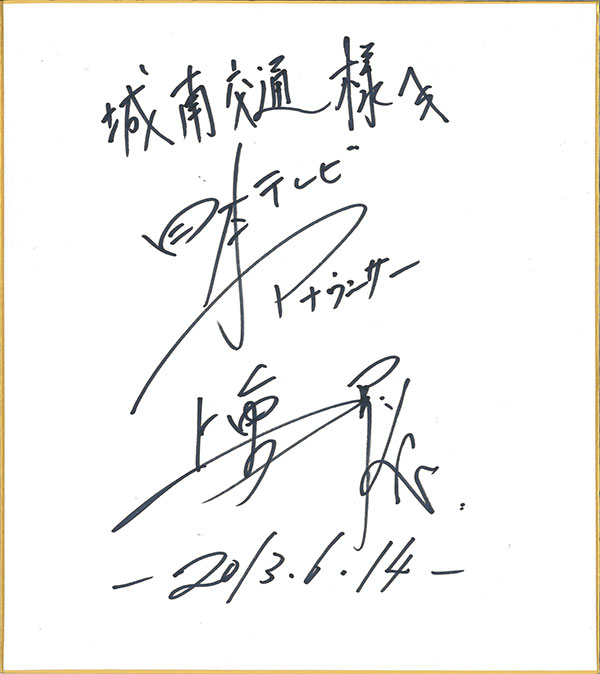 城南交通 様へ
日本テレビ
アナウンサー
上重 聡
-2013.6.14-